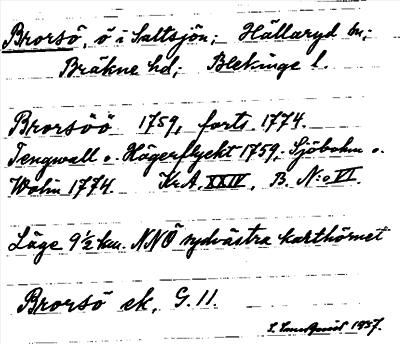 Brorsö, ö i Saltsjön; Hällaryd sn;
Bräkne hd; Blekinge l.
Brorsöö 1759, forts. 1774.
Tengwall o. Hägerflycht 1759, Sjöbohm o.
Wohin 1774. Kr.A. XXIV, B. N:o VI.
Läge 9½ km. NNÖ sydvästra karthörnet
Brorsö ek. G. 11.
1937.